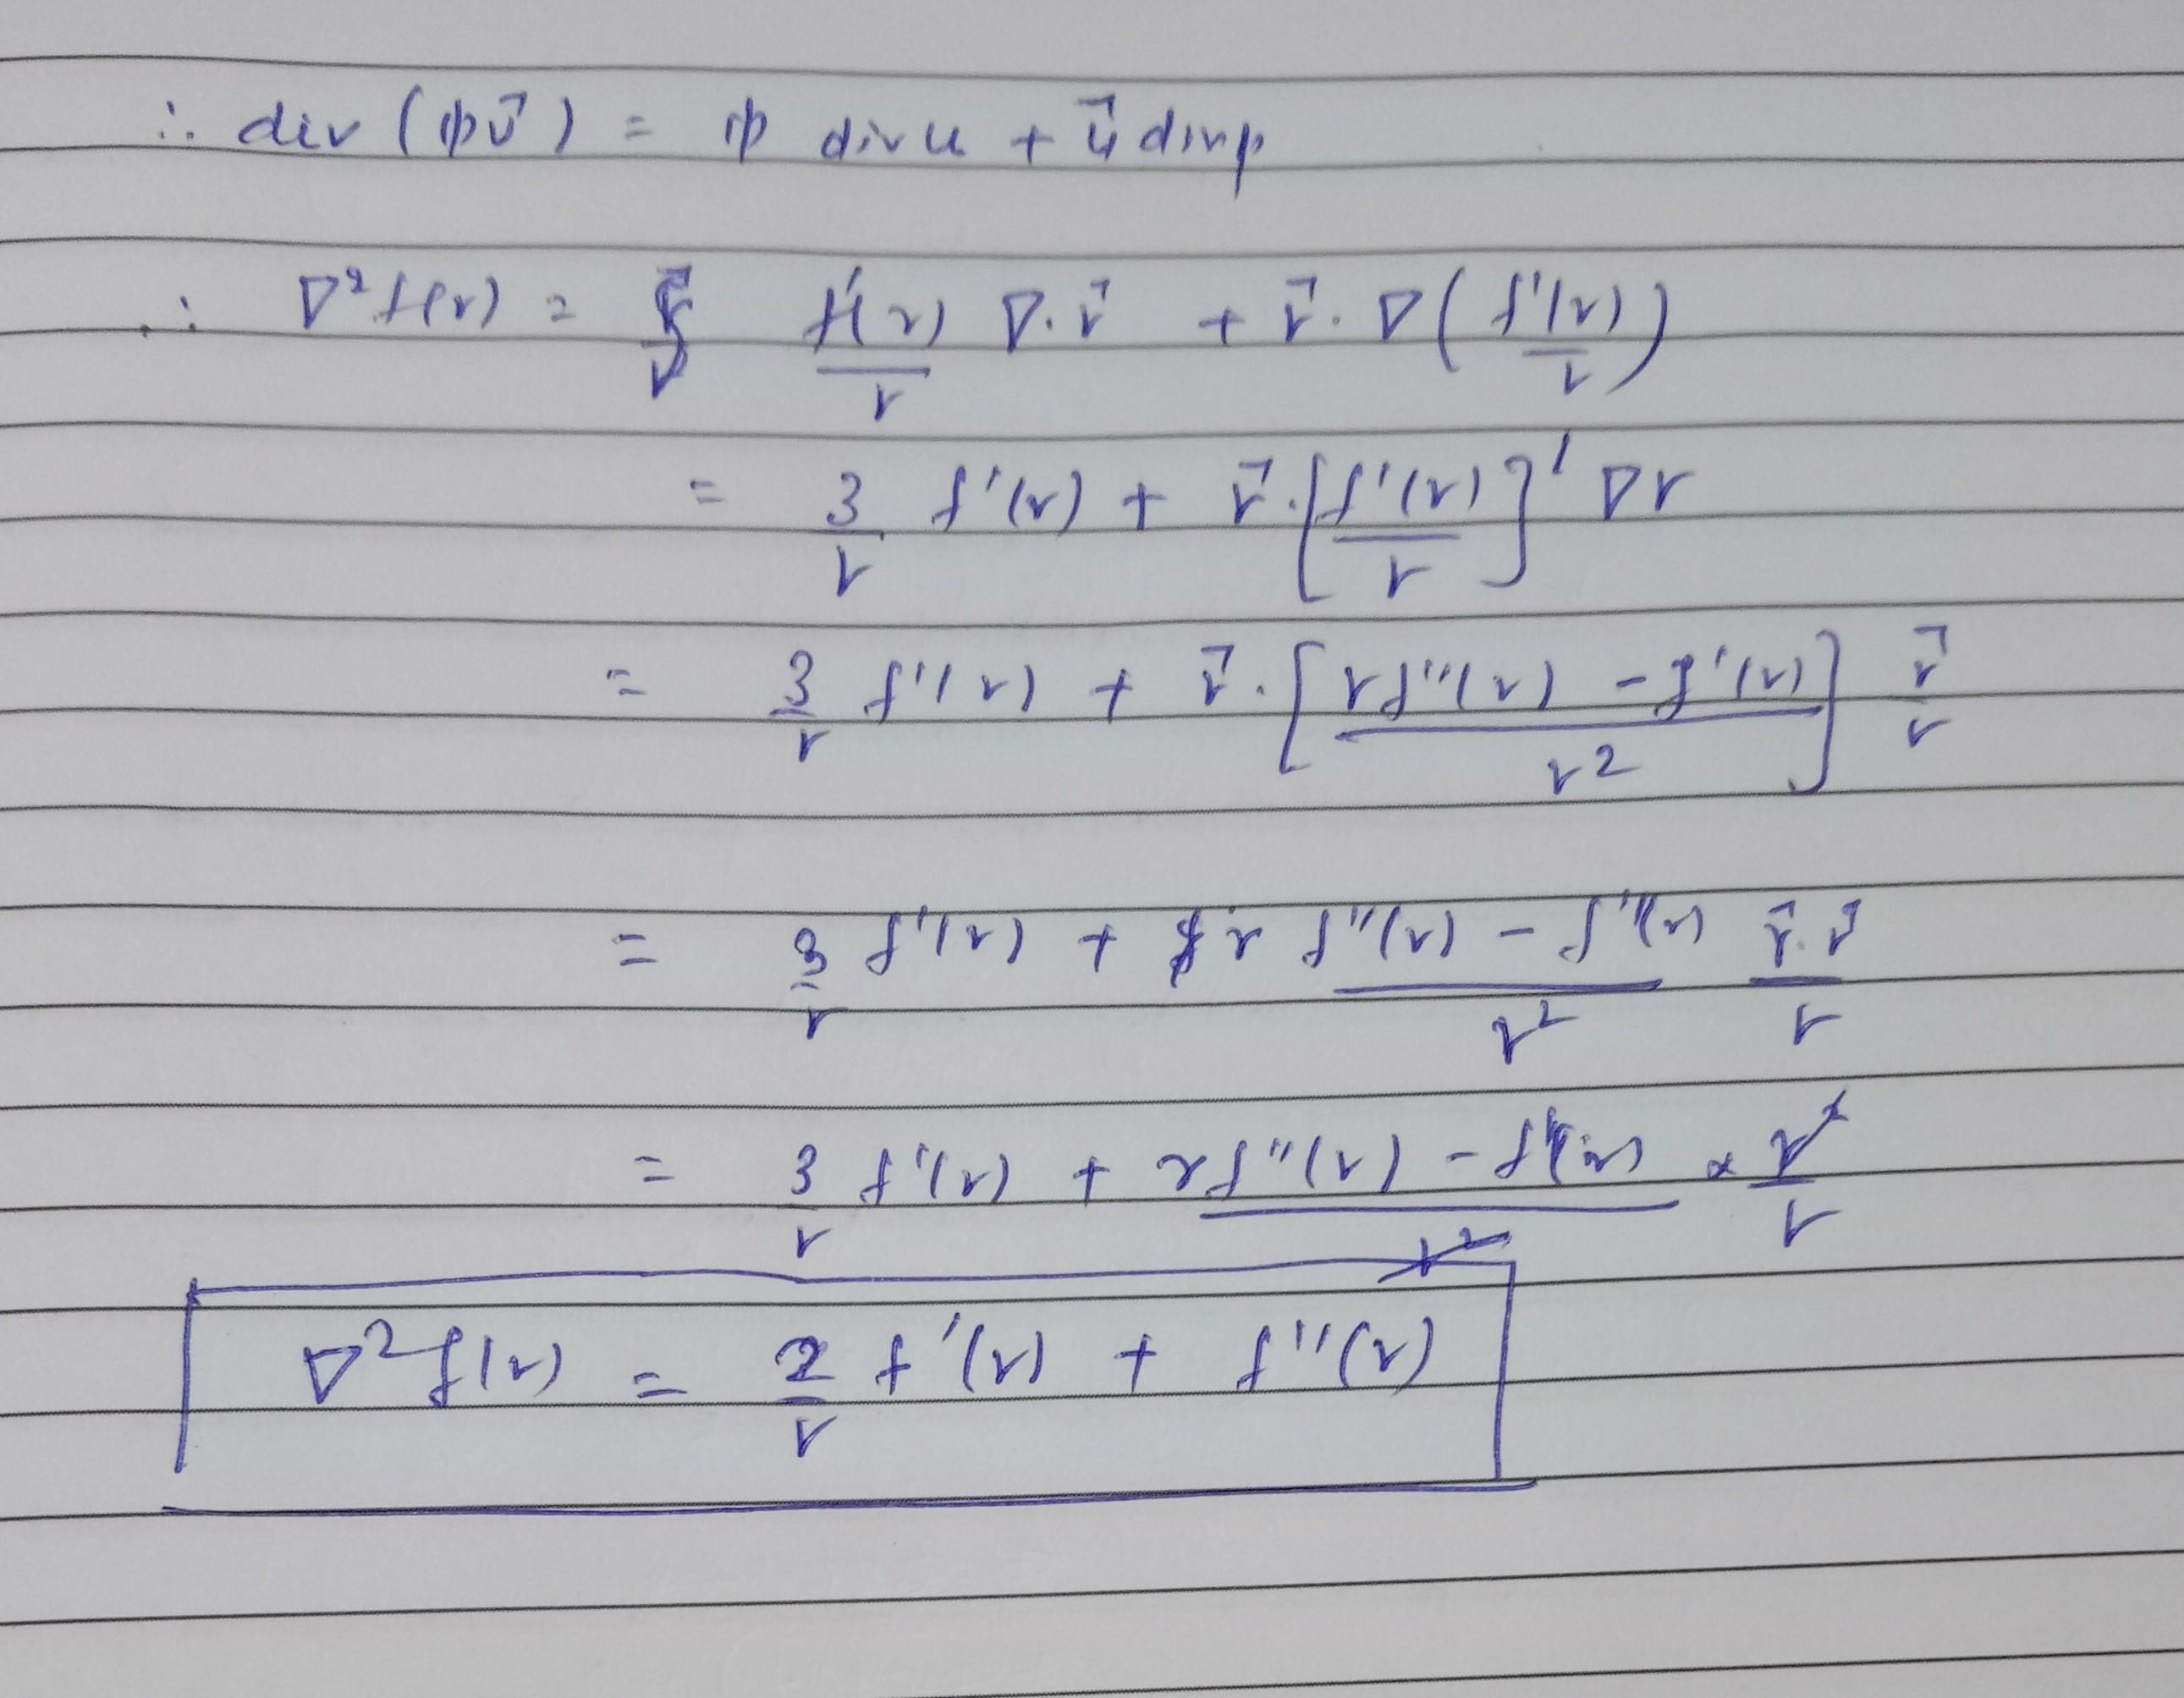 ∴ div (φu⃗) = φ div u + u⃗ div φ
∴ ∇²f(r) = f'(r)/r ∇·r⃗ + r⃗·∇(f'(r)/r)
= 3/r f'(r) + r⃗·[f'(r)/r]' ∇r
= 3/r f'(r) + r⃗·[rf''(r) - f'(r)/r²] r⃗/r
= 3/r f'(r) + r f''(r) - f'(r)/r² r⃗·r⃗/r
= 3/r f'(r) + rf''(r) - f'(r)/r² × r²/r
∇²f(r) = 2/r f'(r) + f''(r)